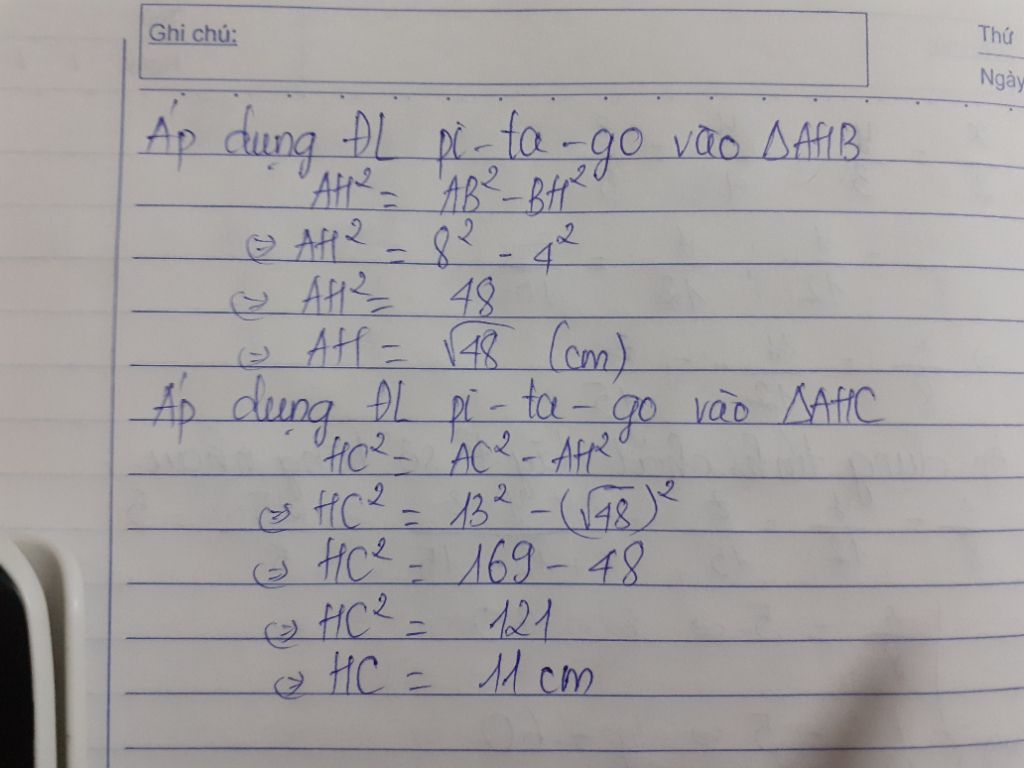 Ghi chú:
Thứ
Ngày
Áp dụng ĐL pi-ta-go vào ΔAHB
AH² = AB² - BH²
⇔ AH² = 8² - 4²
⇔ AH² = 48
⇔ AH = √48 (cm)
Áp dụng ĐL pi-ta-go vào ΔAHC
HC² = AC² - AH²
⇔ HC² = 13² - (√48)²
⇔ HC² = 169 - 48
⇔ HC² = 121
⇔ HC = 11 cm